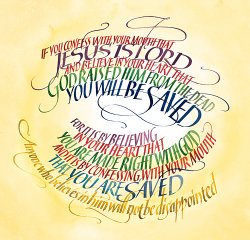 IF YOU CONFESS WITH YOUR MOUTH THAT
JESUS IS LORD
AND BELIEVE IN YOUR HEART THAT
GOD RAISED HIM FROM THE DEAD
YOU WILL BE SAVED
FOR IT IS BY BELIEVING
IN YOUR HEART THAT
YOU ARE MADE RIGHT WITH GOD
AND IT IS BY CONFESSING WITH YOUR MOUTH
THAT YOU ARE SAVED
Anyone who believes in him will not be disappointed